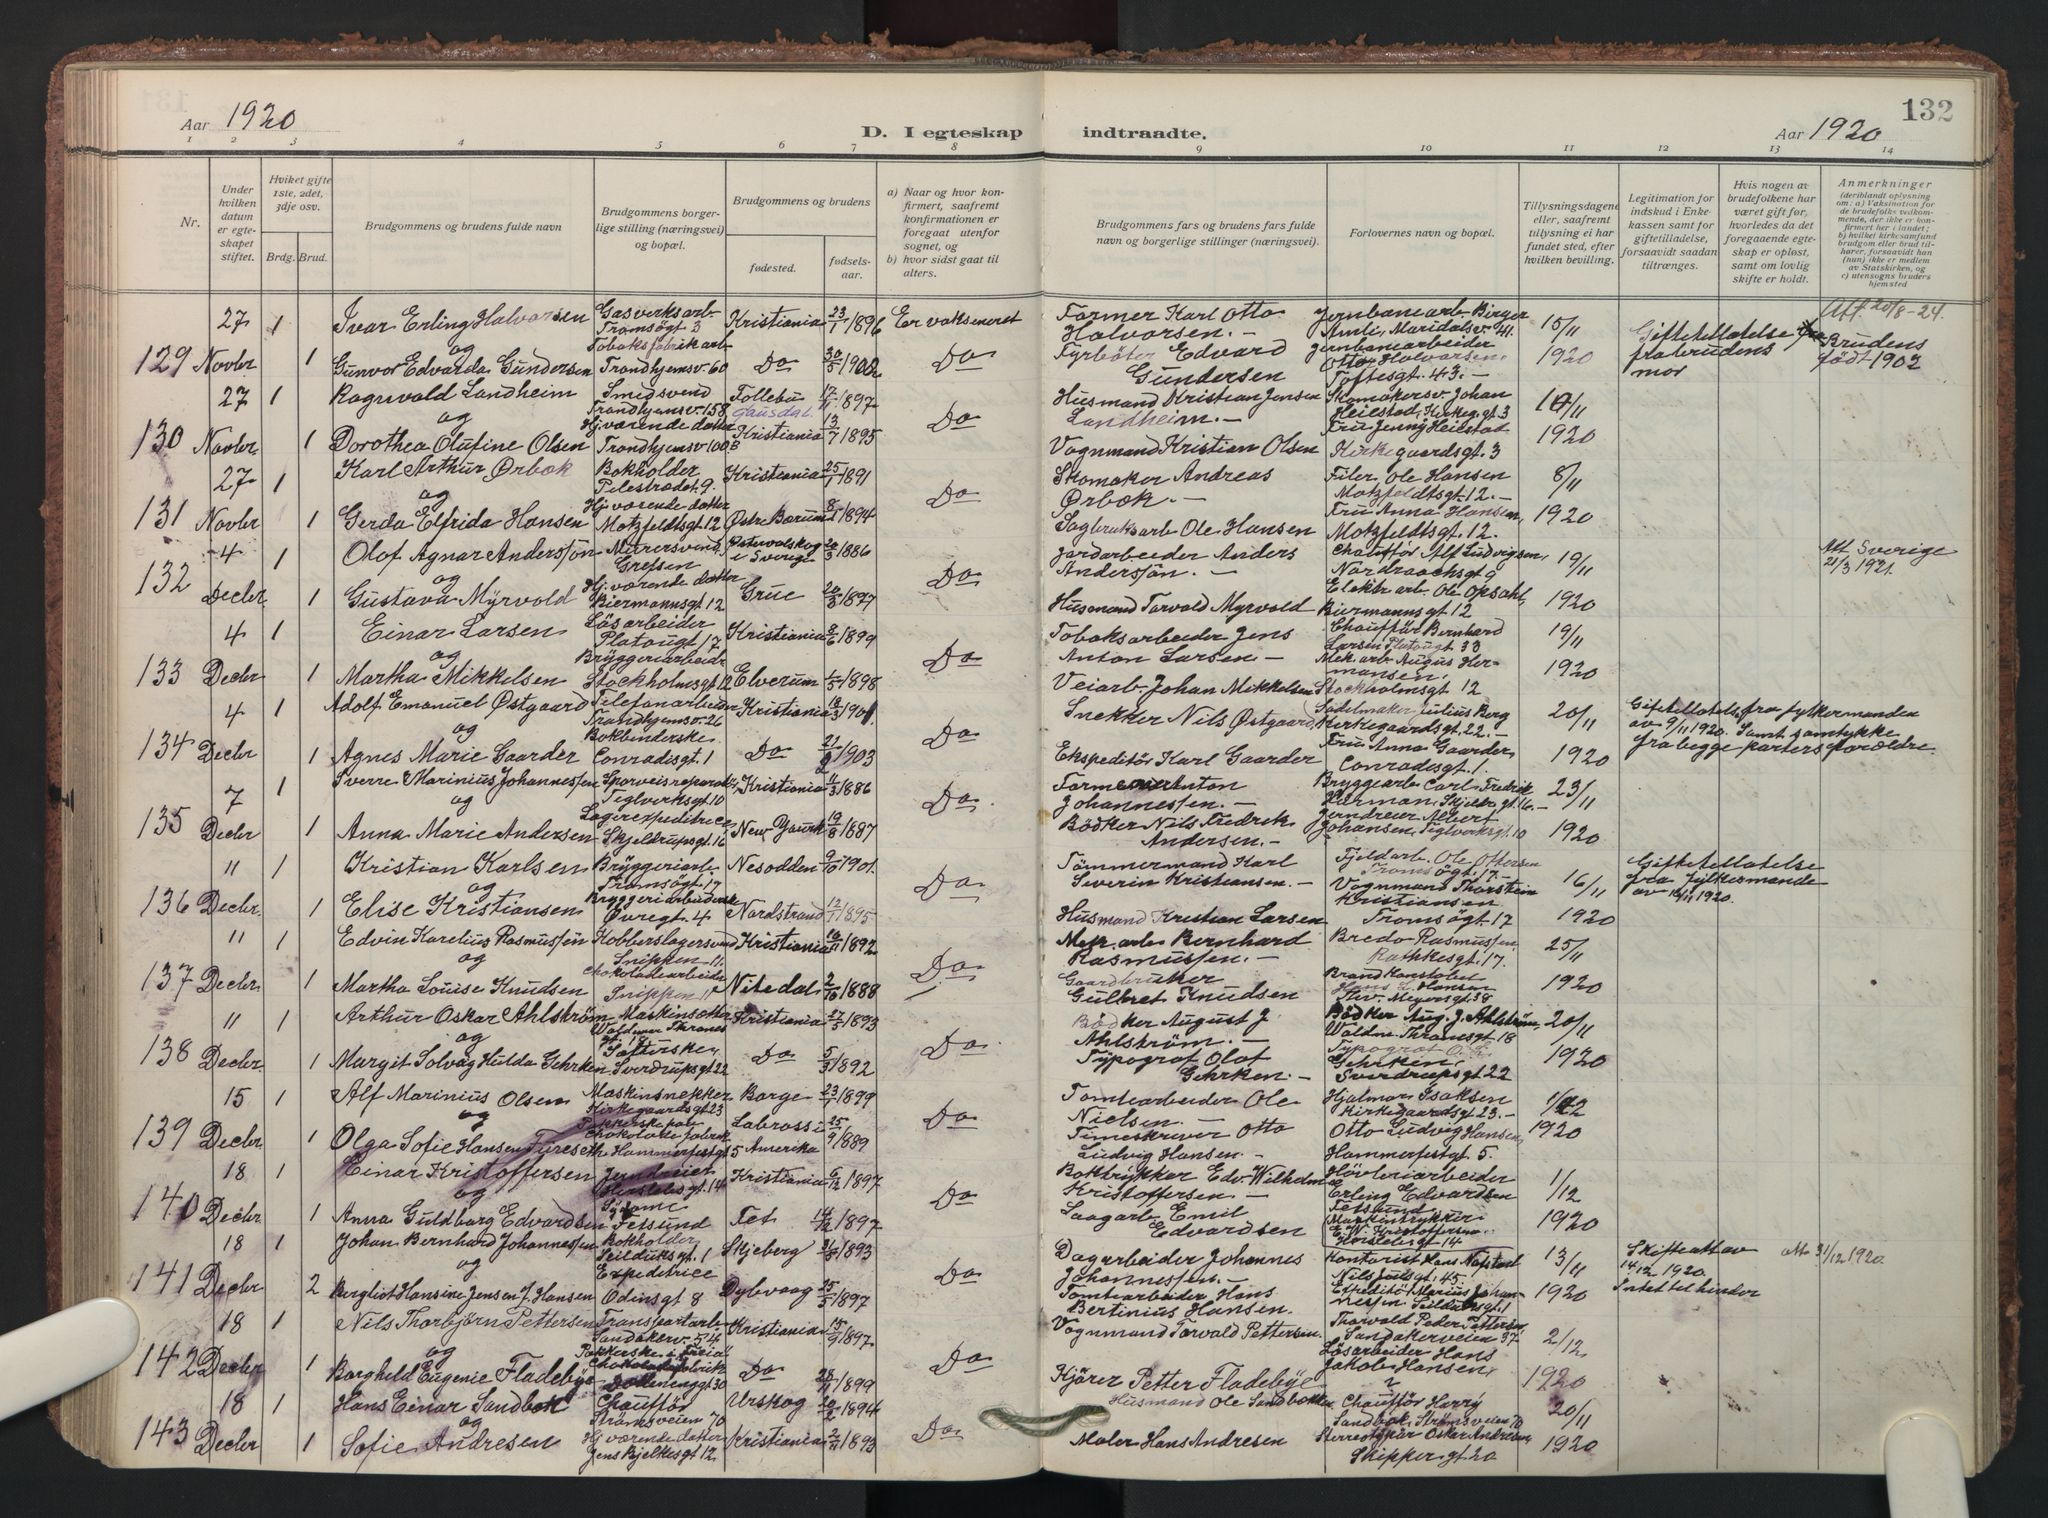 132
Aar 1920
D. I egteskap indtraadte.
Aar 1920
1 2 3 4 5 6 7 8 9 10 11 12 13 14
Nr.
Under hvilken datum er egteskapet stiftet.
Hviket gifte 1ste, 2det, 3dje osv.
Brdg. Brud.
Brudgommens og brudens fulde navn
Brudgommens borgerlige stilling (næringsvei) og bopæl.
Brudgommens og brudens
fødested.
fødselsaar.
a) Naar og hvor konfirmert, saafremt konfirmationen er foregaat utenfor sognet, og
b) hvor sidst gaat til alters.
Brudgommens fars og brudens fars fulde navn og borgerlige stillinger (næringsvei).
Forlovernes navn og bopæl.
Tillysningsdagene eller, saafremt tillysning ei har fundet sted, efter hvilken bevilling.
Legitimation for indskud i Enkekassen samt for giftetilladelse, forsaavidt saadan tiltrænges.
Hvis nogen av brudefolkene har været gift før, hvorledes da det foregaaende egteskap er opløst, samt om lovlig skifte er holdt.
Anmerkninger (deriblandt oplysning om: a) Vaksination for de brudefolks vedkommende, der ikke er konfirmert her i landet; b) hvilket kirkesamfund brudgom eller brud tilhører, forsaavidt han (hun) ikke er medlem av Statskirken, og c) utensogns bruders hjemsted
129 27 Novber 1 Ivar Erling Halvorsen Gasverksarb. Tromsögt 3 Kristiania 23/1 1896 Er vaksineret Former Karl Otto Halvorsen. Jernbanearb. Birger Amli, Maridalsv. 41. 15/11 1920 Giftetillatelse fra brudens mor Att. 20/8-24.
og
1 Gunvor Edvarda Gundersen Tobaksfabrikarb. Trondhjemsv. 60 Do 30/5 1902 Do Fyrböter Edvard Gundersen Jernbanearbeider Otto Halvorsen, Toftesgt. 43. Brudens født 1902
130 27 Novber 1 Ragnvald Landheim Smedsvend Trondhjemsv. 158 Follebu Gausdal 17/11 1897 Do Husmand Kristian Jensen Landheim. Skomakersv. Johan Heiestad, Kirkeg. gt. 3 1920
og
1 Dorothea Olufine Olsen Hj. værende datter Trondhjemsv. 100B Kristiania 13/7 1895 Vognmand Kristian Olsen Fru Jenny Heiestad Kirkegaardsgt. 3
131 27 Novber 1 Karl Arthur Ørbæk Bokholder Pilestrædet 9. Kristiania 25/1 1891 Do Skomaker Andreas Ørbæk. Filer Ole Hansen Motzfeldtsgt. 12. 8/11 1920
og
1 Gerda Elfrida Hansen Hj. værende datter Motzfeldtsgt. 12 Østre Bærum 1894 Sagbruksarb. Ole Hansen Fru Anna Hansen, Motzfeldtsgt. 12.
132 4 Decbr. 1 Olof Agnar Andersson Murersvend Grefsen Östervalskog i Sverige 20/3 1886 Do Jordarbeider Anders Anderssön. Chauffør Alf Ludvigsen, Nordraachsgt 9 19/11 1920 Att. Sverige 21/3 1921.
og
1 Gustava Myrvold Hj. værende datter Biermannsgt 12 Grue 20/3 1897 Husmand Torvald Myrvold Elektr. arb. Ole Opsahl, Biermannsgt 12
133 4 Decbr 1 Einar Larsen Lösarbeider Platougt. 17 Kristiania 8/6 1899 Do Tobaksarbeider Jens Anton Larsen Chauffør Bernhard Larsen Platougt 33 19/11 1920
og
1 Martha Mikkelsen Bryggeriarbeid. Stockholmsgt 12 Elverum 1898 Veiarb. Johan Mikkelsen Mek. arb. Augus Hermansen. Stockholmsgt 12
134 4 Decbr 1 Adolf Emanuel Østgaard Telefonarbeider Trondhjemsv. 26 Kristiania 18/3 1901. Do Snekker Nils Østgaard, Sadelmaker Julius Berg Kirkegaardsgt. 22. 20/11 1920 Giftetillatelse fra fylkesmanden av 9/11 1920. Samt samtykke fra begge parters forældre.
og
1 Agnes Marie Gaarder Bokbinderske Conradisgt. 1 Do 21/2 1903 Ekspeditör Karl Gaarder Fru Anna Gaarder Conradisgt. 1.
135 7 Decbr 1 Sverre Marinius Johannessen Sporveisreparatör, Teglverksgt. 10 Kristiania 11/3 1886 Do. Former Anton Johannessen. Bryggeriarb. Carl Fredrik Herman, Skjeldr. gt. 16. 23/11 1920
og
1 Anna Marie Andersen Lagerexpeditrice Skjeldrupsgt. 16 New Yourk 19/8 1887 Bödker Nils Fredrik Andersen. Jerndreier Albert Johansen, Teglverksgt. 10
136 " Decbr. 1 Kristian Karlsen Bryggeriarb. Tromsögt. 17 Nesodden 9/10 1901. Do Tömmermand Karl Severin Kristiansen. Fjeldarb. Ole Ottersen Tromsögt. 17. 16/11 1920 Giftetillatelse fra fylkesmande av 16/11 1920.
og
1 Elise Kristiansen Bryggeriarbeiderske Øvregt. 4 Nordstrand 1895 Husmand Kristian Larsen Vognmand Thorstein Kristiansen Tromsögt. 17
137 " Decbr. 1 Edvin Karelius Rasmussen Kobberslagersvend Snippen 11. Kristiania 10/11 1892 Do Mek. arb. Bernhard Rasmussen. Bredo Rasmussen, Rathkesgt. 17. 25/11 1920
og
1 Martha Louise Knudsen Chokoladearbeider Snippen 11 Nitedal 2/10 1888 Gaardbruker Gulbret Knudsen Brandkonstabel Hans L. Hansen Thv. Meyersgt. 38
138 " Decbr. 1 Arthur Oskar Ahlström Maskinsetter Waldemar Thranes gt. 18 Kristiania 27/5 1893 Do. Bödker August J. Ahlström. Bödker Aug. J. Ahlström, Waldm. Thranesgt 18 20/11 1920
og
1 Margit Solvag Hulda Gehrken Sætterske, Sverdrupsgt 22 Do 5/3 1892 Typograf Olaf Gehrken. Typograf Gehrken, Sverdrupsgt 22
139 15 Decbr 1 Alf Marinius Olsen Maskinsnekker Kirkegaardsgt 23 Borge 23/7 1899 Do Tomtearbeider Ole Nielsen. Hjalmar Isaksen Kirkegaardsgt. 23. 1/12 1920
og
1 Olga Sofie Hansen Fureseth Pakkerske paa Chokolade fabrik Hammerfestgt 5 Labrossi Amerika 25/9 1889 Timeskriver Otto Ludvig Hansen Otto Ludvig Hansen, Hammerfestgt. 5.
140 18 Decbr 1 Einar Kristoffersen Jerndreier Herslebsgt. 14 Kristiania 6/12 1897 Do Boktrykker Edv. Wilhelm Kristoffersen. Hövleriarbeider Erling Edvardsen Fetsund. 1/12 1920
og
1 Anna Guldborg Edvardsen Sydame Fetsund Fet 14/12 1897 Saagarb. Emil Edvardsen Maskintrykker E.W. Kristoffersen Herslebsgt 14
141 18 Decbr 1 Johan Bernhard Johannessen Bokholder Seilduksgt. 1 Skjeberg 31/5 1893 Do Dagarbeider Johannes Johannessen. Kontorist Hans Nafstad Nils Juilsgt. 45. 13/11 1920 Skifteatt av 14/12 1920. Intet til hinder att. 31/12 1920.
og
2 Bergliot Hansine Jensen f. Hansen Expeditrice Odinsgt 8 Dybvaag 25/5 1897 Tomtearbeider Hans Bertinius Hansen. Expeditör Marius Johannessen Seilduksgt. 1
142 18 Decbr 1 Nils Thorbjörn Pettersen Transportarb. Sandakerv. 54 Kristiania 15/9 1897. Do Vognmand Torvald Pettersen. Thorvald Peder Pettersen Sandakerveien 37 2/12 1920
og
1 Borghild Eugenie Fladebye Pakkerske i "Freia" Chokoladefabrik Do 1899 Kjörer Petter Fladebye Lösarbeider Hans Jakob Hansen,
143 18 Decbr 1 Hans Einar Sandbæk Chauffør Strömsveien 70 Urskog 20/2 1894 Do. Husmand Ole Sandbækken Chauffør Harry Sandbæk, Strömsveien 70 20/11 1920
og
1 Sofie Andresen Hj værende datter Jens Bjelkesgt 12 Kristiania 1893 Maler Hans Andresen Stereotypör Oskar Andresen, Skippergt. 20